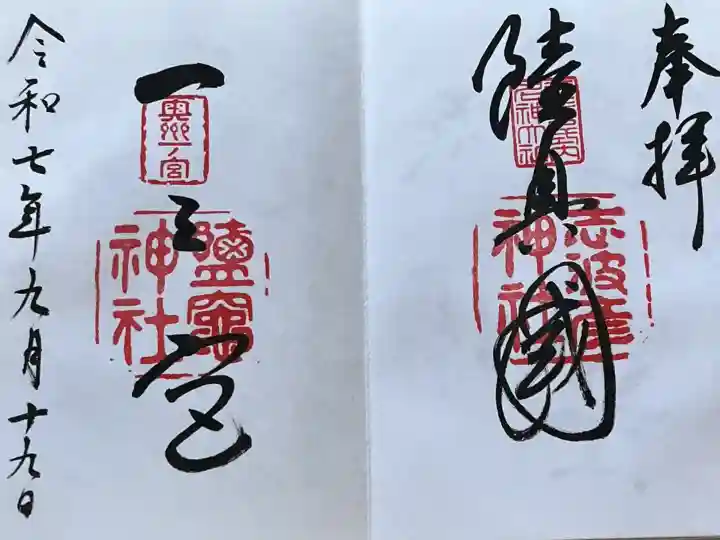 奉拝
陸奥國
志波彦
神社
一之宮
奥州
一ノ宮
鹽竈
神社
令和七年九月十九日